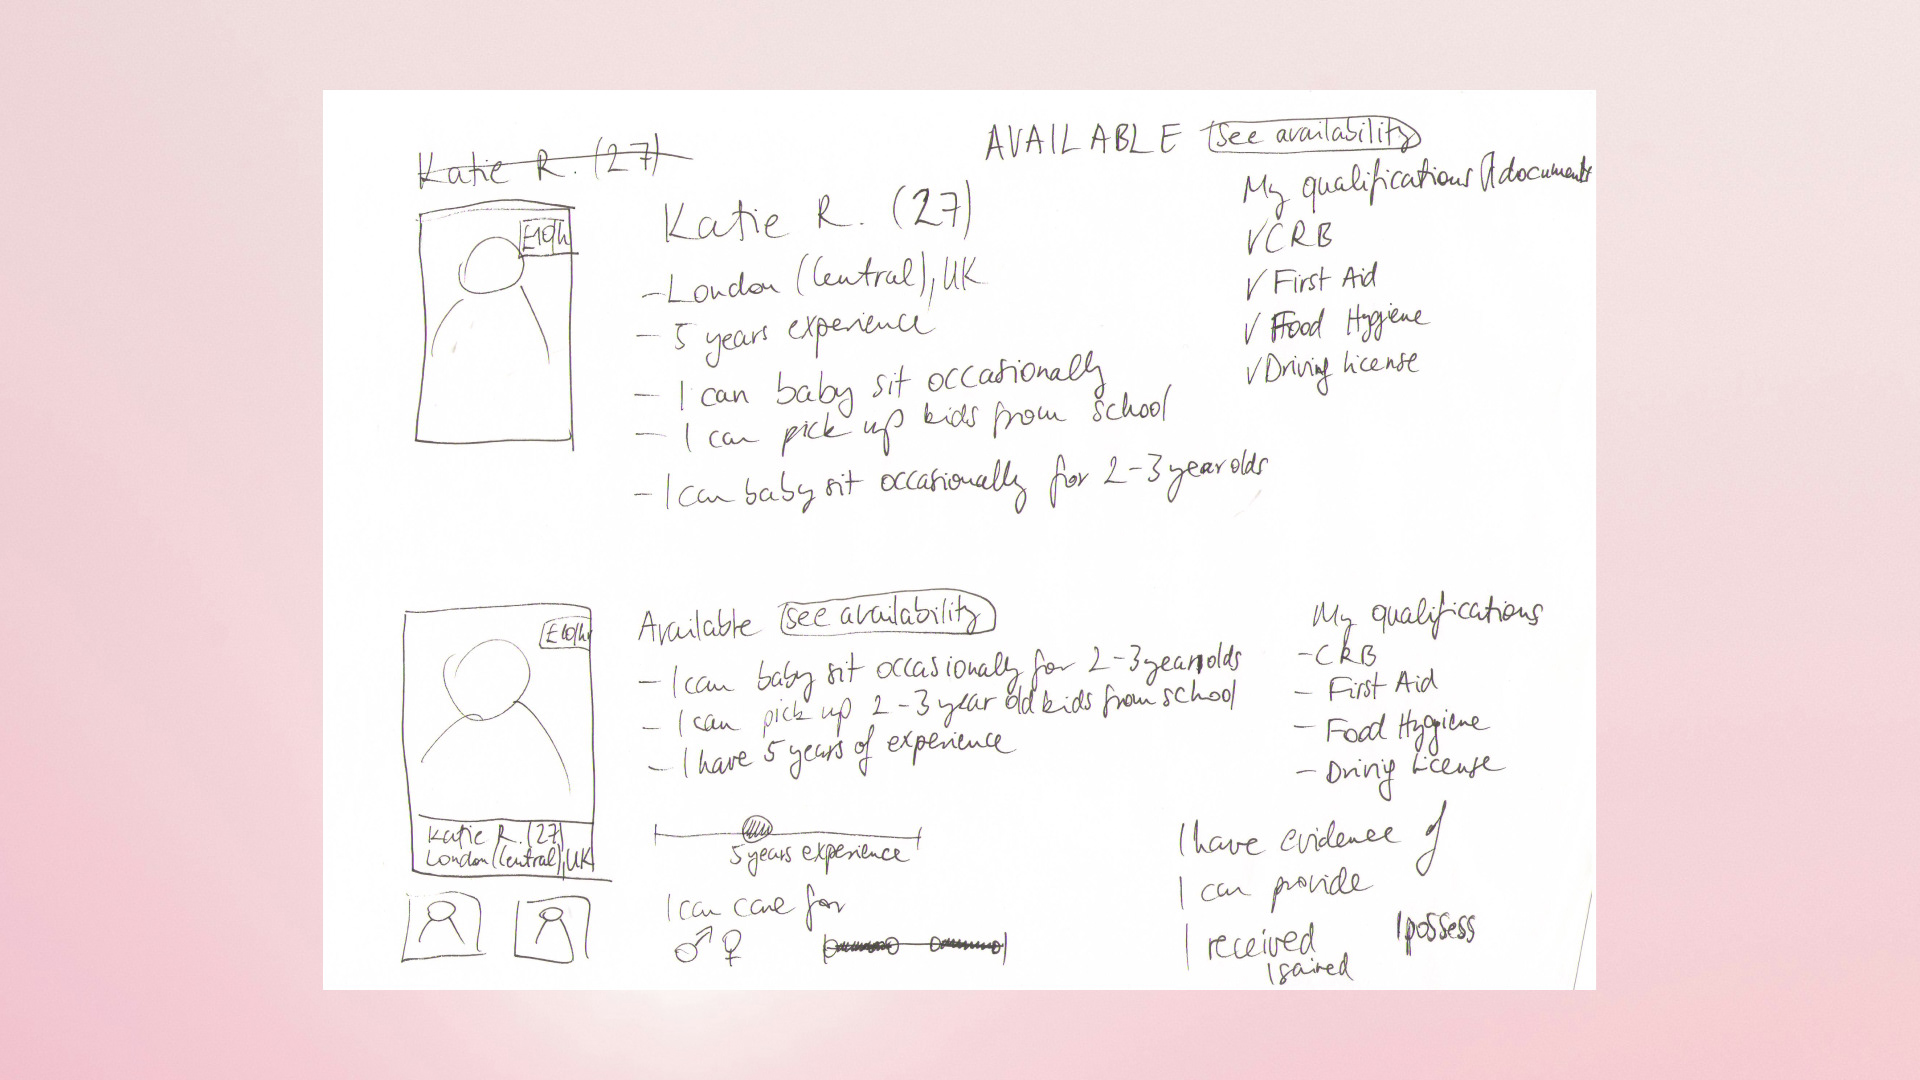 Katie R. (27)
AVAILABLE see availability
£10/h
Katie R. (27)
- London (Central), UK
- 5 years experience
- I can baby sit occasionally
- I can pick up kids from school
- I can baby sit occasionally for 2-3 year olds
My qualifications documents
✓ CRB
✓ First Aid
✓ Food Hygiene
✓ Driving License
£10/h
Katie R. (27)
London (Central), UK
Available see availability
- I can baby sit occasionally for 2-3 year olds
- I can pick up 2-3 year old kids from school
- I have 5 years of experience
5 years experience
I can care for
♂ ♀
My qualifications
- CRB
- First Aid
- Food Hygiene
- Driving License
I have evidence of
I can provide
I received I possess
I gained